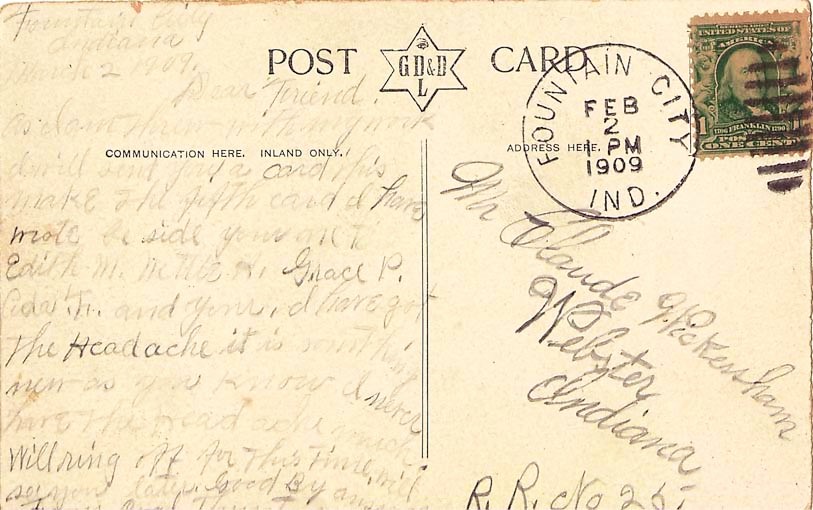 Fountain City
Indiana
March 2 1909.
Dear Friend.
as I am threw with my work
I will send you a card, this
make the fifth card I have
wrote be side yours
Edith M. Nettie H. Grace P.
Ada F. and yours, I have got
the Headache it is something
new as you know I never
have the head ache much
Will ring off for this time, will
see you later. Good By
POST CARD
G D & D
L
COMMUNICATION HERE. INLAND ONLY.
ADDRESS HERE.
FOUNTAIN CITY
FEB
2
1 PM
1909
IND.
SERIES 1902
UNITED STATES OF
AMERICA
1 FRANKLIN
ONE CENT
Mr Claude
Webster
Indiana,
R. R. No 26.